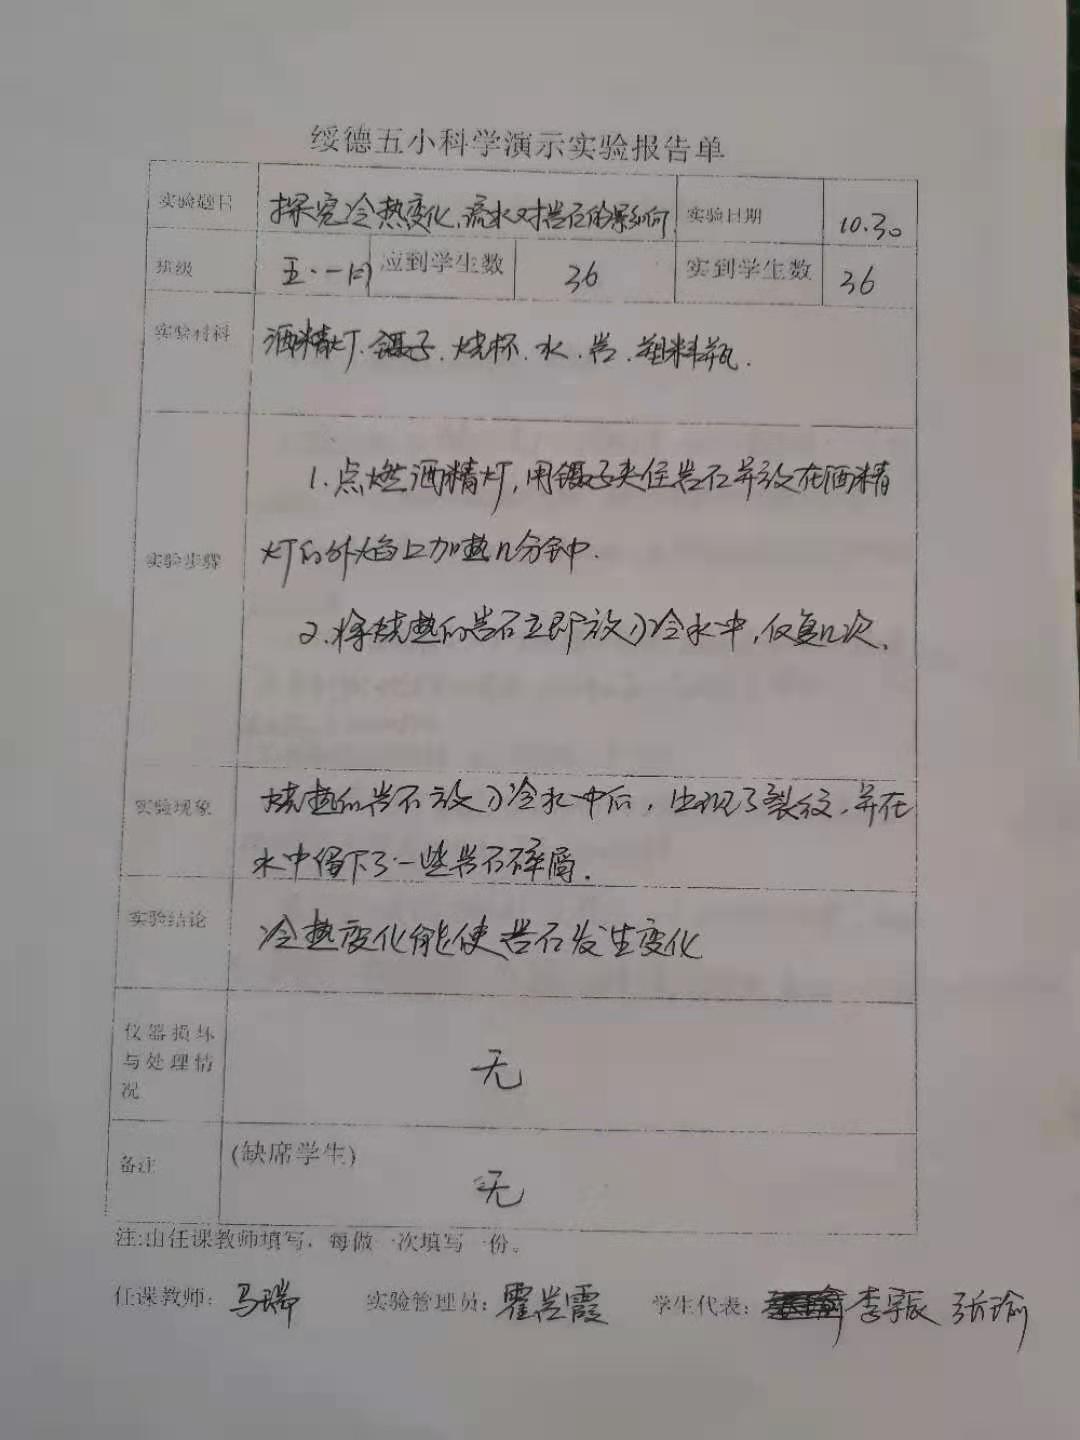 绥德五小科学演示实验报告单
实验题目 探究冷热变化、流水对岩石的影响 实验日期 10.30
班级 五.一 应到学生数 36 实到学生数 36
实验材料 酒精灯.镊子.烧杯.水.岩.塑料瓶.
1.点燃酒精灯,用镊子夹住岩石并放在酒精
实验步骤 灯的外焰上加热几分钟.
2.将烧热的岩石立即放入冷水中,反复几次、
实验现象 烧热的岩石放入冷水中后,出现了裂纹,并在
水中留下了一些岩石碎屑.
实验结论 冷热变化能使岩石发生变化
仪器损坏
与处理情 无
况
备注 (缺席学生)
无
注:由任课教师填写,每做一次填写一份。
任课教师:马瑞 实验管理员:霍岩霞 学生代表: 李宇辰 张瑜